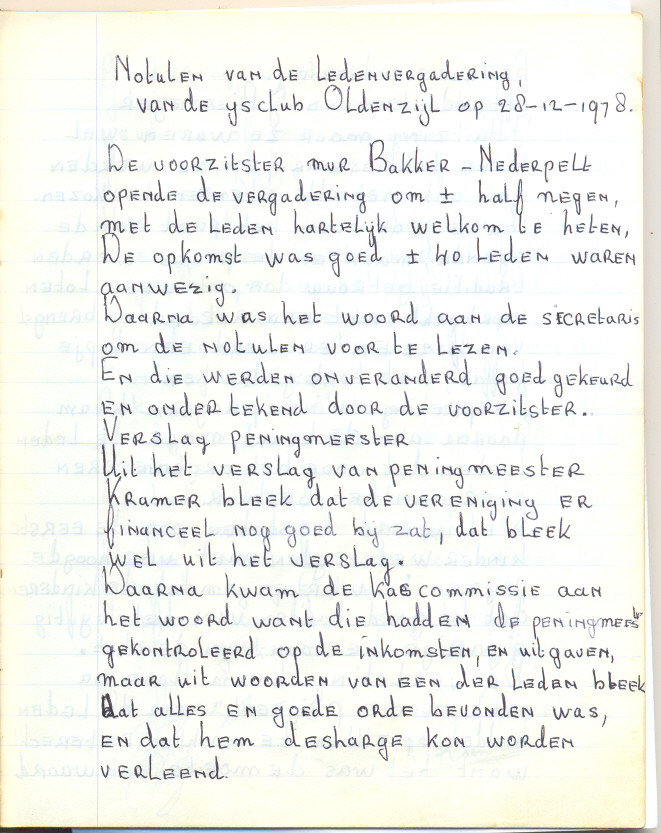 Notulen van de ledenvergadering,
van de ysclub Oldenzijl op 28-12-1978.
De voorzitster mvr Bakker - Nederpelt
opende de vergadering om ± half negen,
met de leden hartelijk welkom te heten,
De opkomst was goed ± 40 leden waren
aanwezig.
Daarna was het woord aan de secretaris
om de notulen voor te lezen.
En die werden onveranderd goed gekeurd
en ondertekend door de voorzitster..
Verslag peningmeester
Uit het verslag van peningmeester
Kramer bleek dat de vereniging er
financeel nog goed bij zat, dat bleek
wel uit het verslag.
Daarna kwam de kascommissie aan
het woord want die hadden de peningmeester
gekontroleerd op de inkomsten, en uitgaven,
maar uit woorden van een der leden bleek
dat alles en goede orde bevonden was,
en dat hem desharge kon worden
verleend.